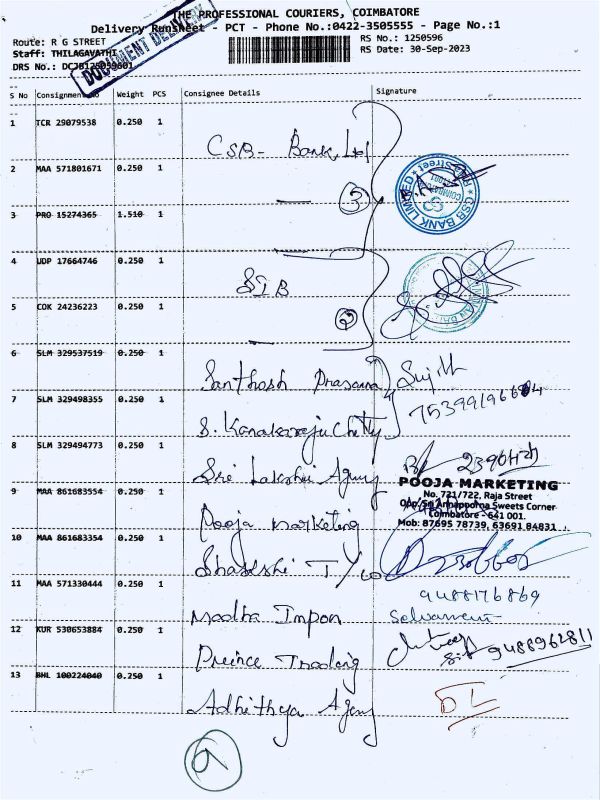 THE PROFESSIONAL COURIERS, COIMBATORE
Delivery Runsheet - PCT - Phone No.:0422-3505555 - Page No.:1
Route: R G STREET
RS No.: 1250596
Staff: THILAGAVATHI
RS Date: 30-Sep-2023
DRS No.:
DOCUMENT DELIVERY
S No Consignment No Weight PCS Consignee Details Signature
1 TCR 29079538 0.250 1
CSB- Bank, Ltd
2 MAA 571801671 0.250 1
3
CSB BANK LIMITED
3 PRO 15274365 1.510 1
4 UDP 17664746 0.250 1
SIB
5 COK 24236223 0.250 1
2
6 SLM 329537519 0.250 1
Santhosh Prasanna
7 SLM 329498355 0.250 1
S. Kanakaraju Chetty
8 SLM 329494773 0.250 1
Sri Lakshmi Agency
9 MAA 861683554 0.250 1
POOJA MARKETING
No. 721/722, Raja Street
Opp. Sri Annapporna Sweets Corner
Coimbatore - 641 001.
Mob: 87695 78739, 63691 84831
Pooja marketing
10 MAA 861683354 0.250 1
11 MAA 571330444 0.250 1
9488176869
Madha Impon
12 KUR 530653884 0.250 1
9488962811
Prince Trading
13 BHL 100224040 0.250 1
DL
Adhithya Agency
9